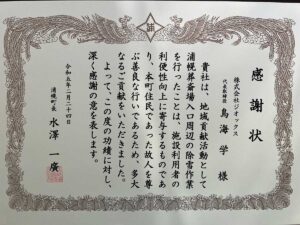 感謝状
株式会社ジオックス
代表取締役
鳥海学様
貴社は、地域貢献活動として
浦幌葬斎場入口周辺の除雪作業
を行ったことは、施設利用者の
利便性向上に寄与するものであ
り、本町住民であった故人を尊
ぶ善良な行いであるため、多大
なるご貢献をいただきました。
よって、この度の功績に対し、
深く感謝の意を表します。
令和五年二月二十四日
浦幌町長
水澤一廣